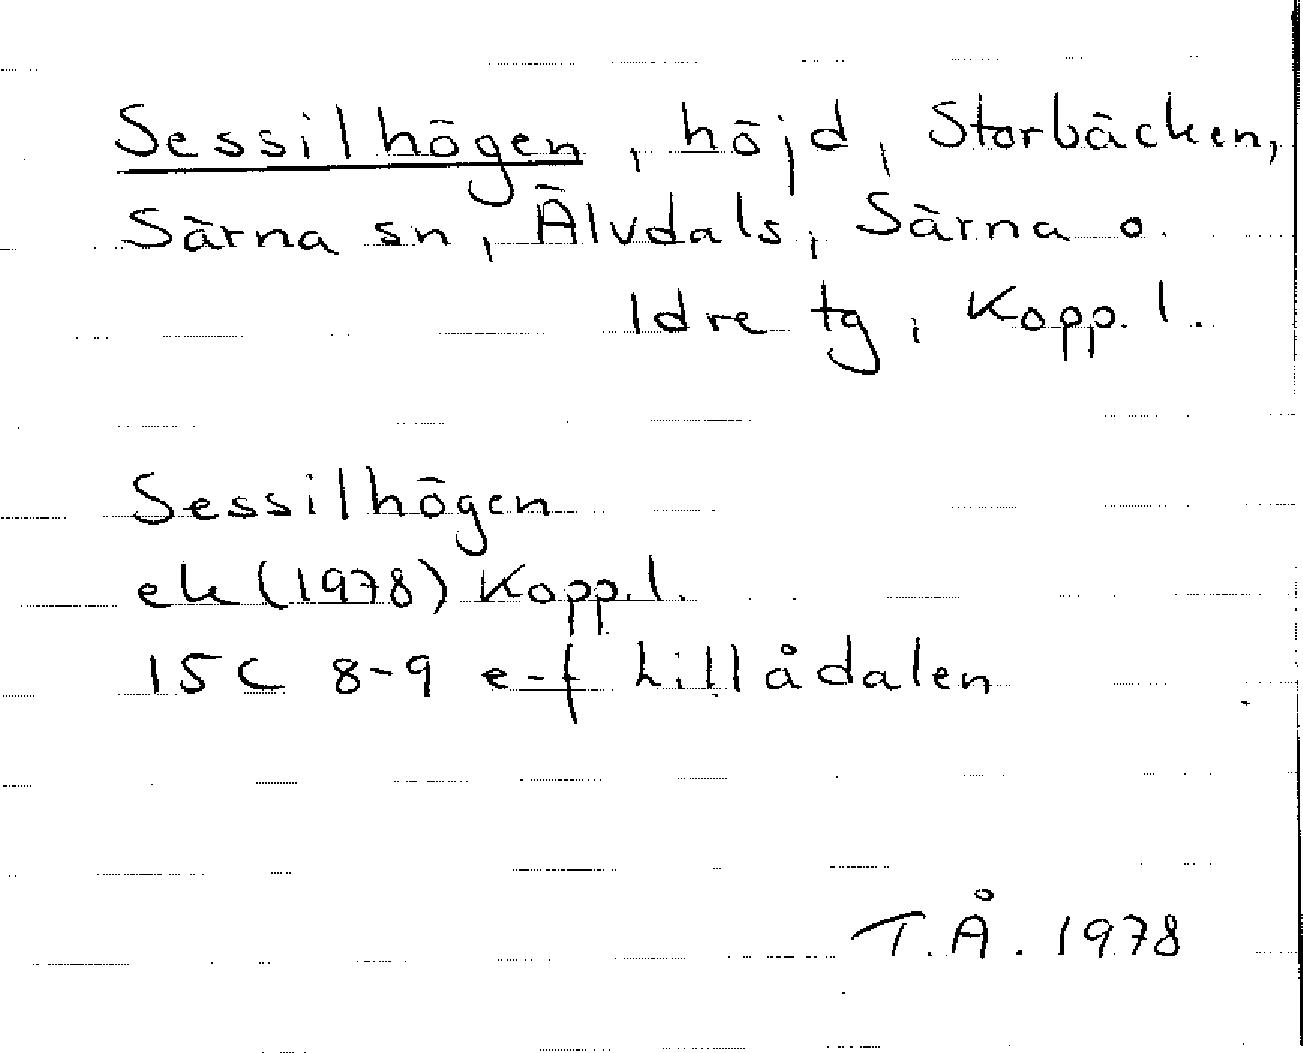 Sessilhögen, höjd, Storbäcken,
Särna sn, Älvdals, Särna o.
Idre tg, Kopp. l.
Sessilhögen
ek (1978) Kopp. l.
15C 8-9 e-f Lillådalen
T.Å. 1978